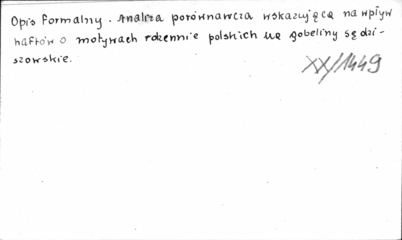 Opis formalny. Analiza porównawcza wskazującą na wpływ
haftów o motywach rdzennie polskich na gobeliny sędzi-
szowskie.
XX/1449